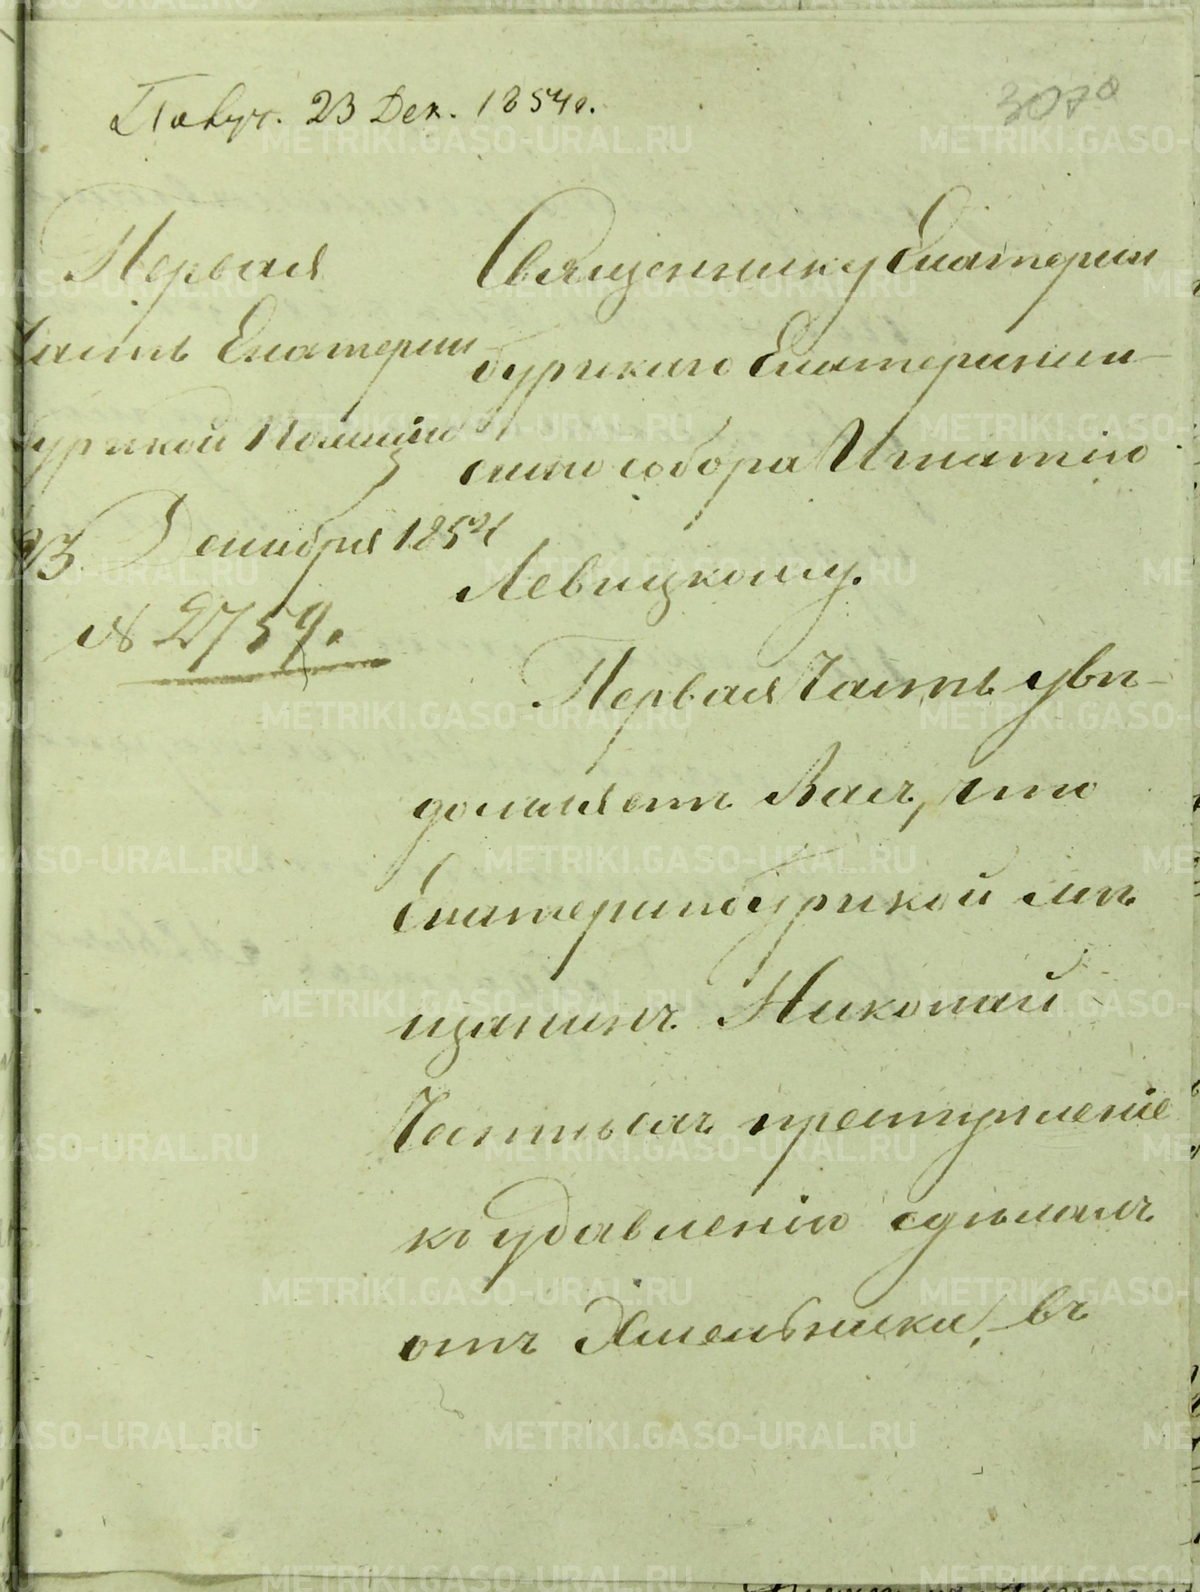 Получ. 23 Дек. 1854 г.
307
Первая
Часть Екатерин
бургской Полиціи
23 Декабря 1854
№ 2759.
Священнику Екатерин
бургскаго Екатеринин-
скаго собора Игнатію
Левицкому.
Первая Часть увѣ-
домляетъ Васъ, что
Екатеринбургской мѣ
щанинъ Николай
преступленіе
къ удавленію сдѣлалъ
отъ въ
METRIKI.GASO-URAL.RU